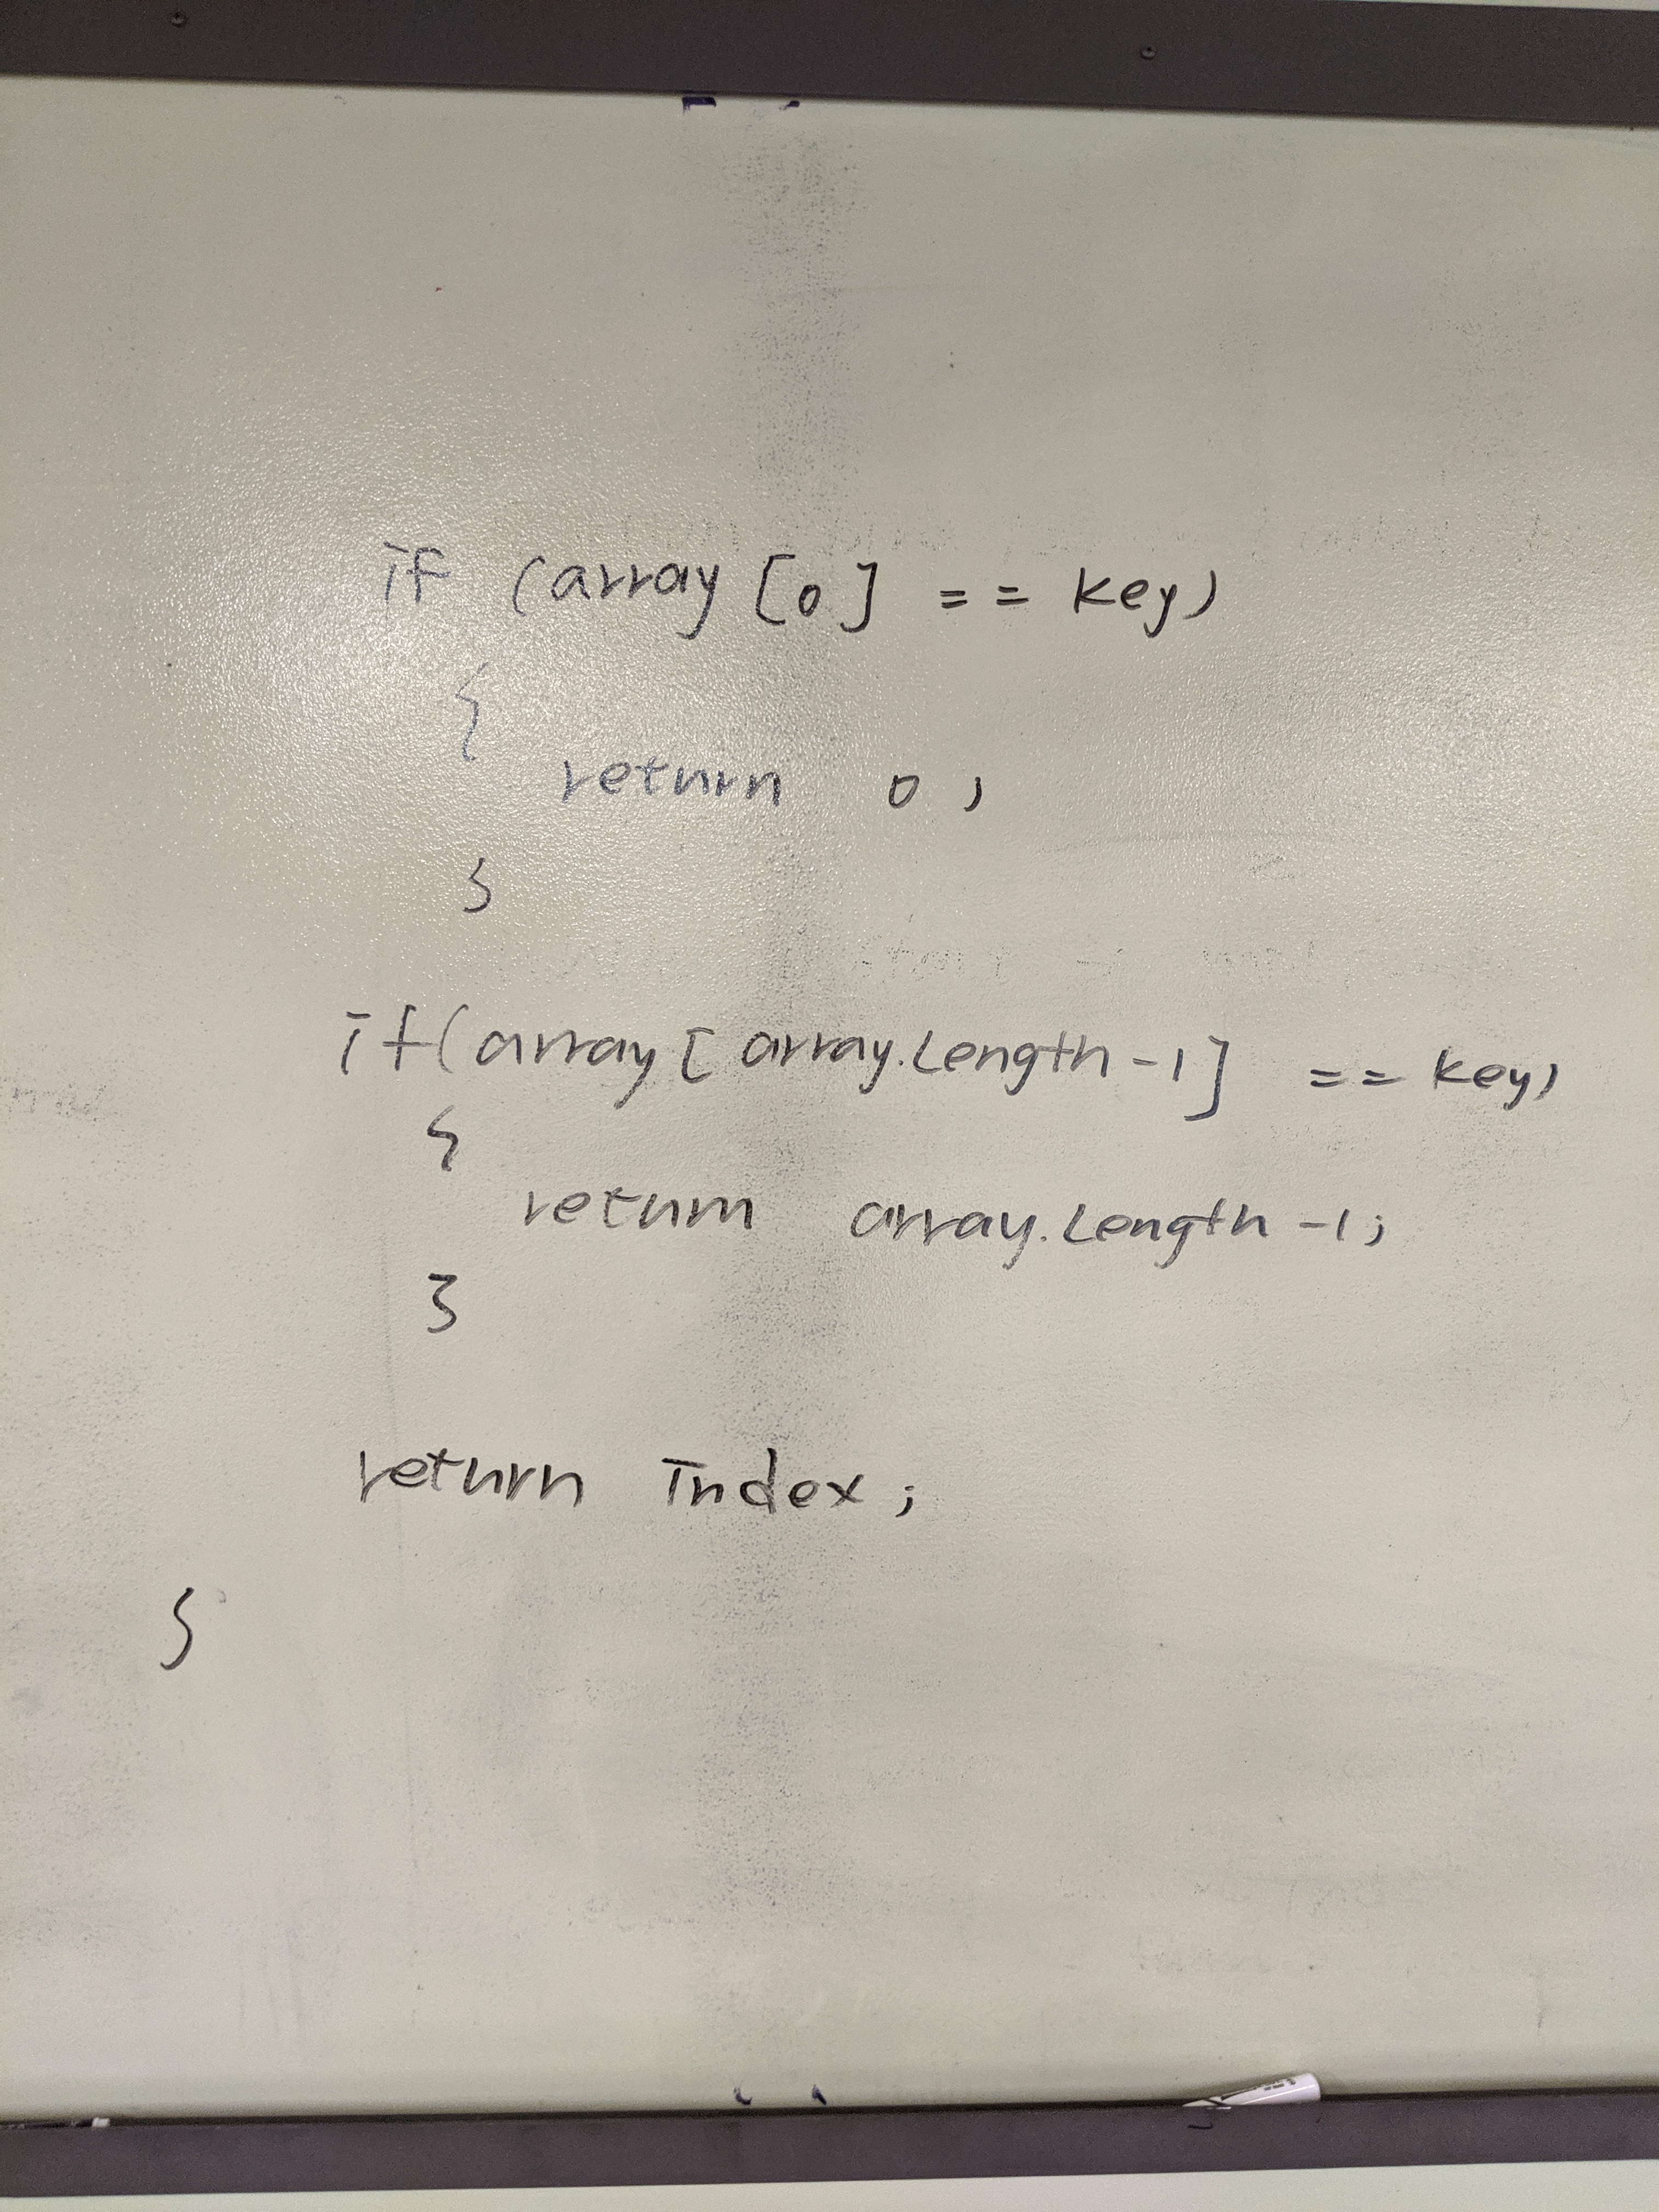 if (array [0] == key)
{
return 0;
}
if(array[array.Length-1] == key)
{
return array.Length-1;
}
return index;
}